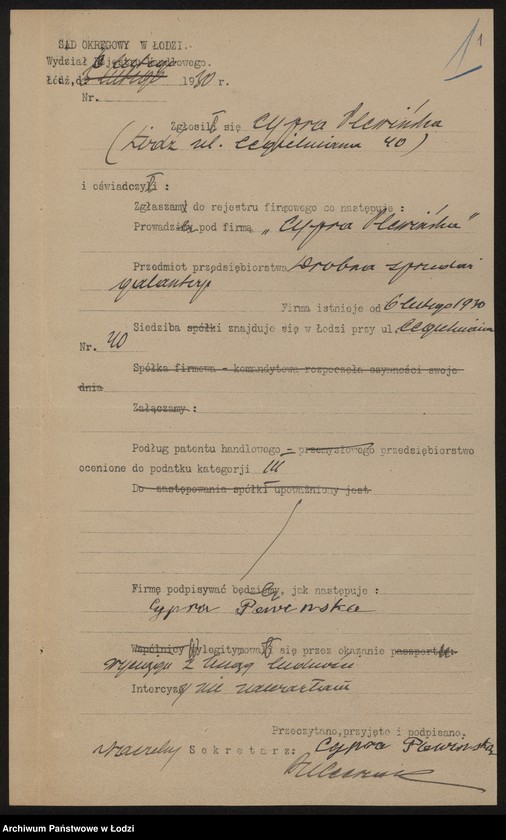 1
SĄD OKRĘGOWY W ŁODZI.
Wydział Rejestru Handlowego.
Łódź, d. 6 lutego 1930 r.
Nr.
Zgłosił się Cypra Plewińska
(Łódź ul. Cegielniana 40)
i oświadczył:
Zgłaszam do rejestru firmowego co następuje :
Prowadzę pod firmą „Cypra Plewińska"
Przedmiot przedsiębiorstwa drobna sprzedaż
galanterji
Firma istnieje od 6 lutego 1930
Siedziba spółki znajduje się w Łodzi przy ul. Cegielniana
Nr. 40
Spółka firmowa - komandytowa rozpoczęła czynności swoje
dnia
Załączamy :
Podług patentu handlowego - przemysłowego przedsiębiorstwo
ocenione do podatku kategorji III
Do zastępowania spółki upoważniony jest
Firmę podpisywać będę, jak następuje :
Cypra Plewinska
Wspólnicy wylegitymował się przez okazanie paszportu
wyciągu z ksiąg ludności
Intercyzy nie zawarłam
Przeczytano, przyjęto i podpisano.
Sekretarz: Cypra Plewinska